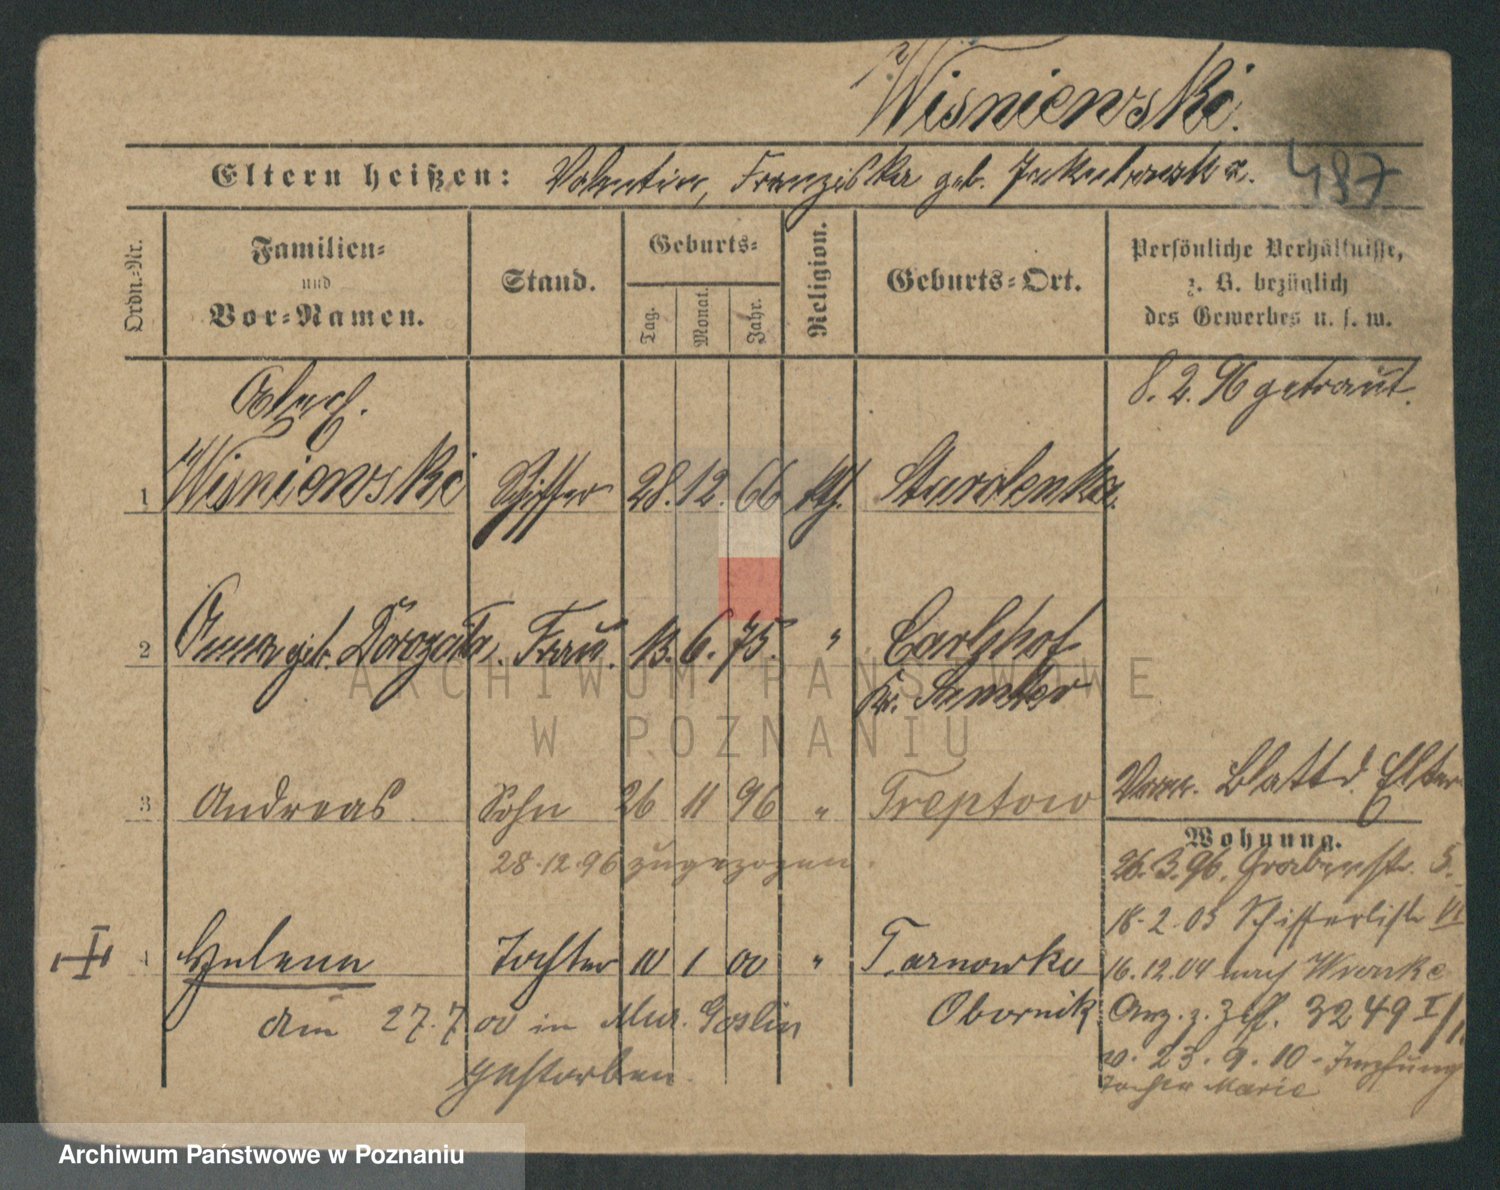 Wisniewski.
Eltern heißen: Valentin, Franziska geb. Jakubowska.
487
Ordn.=Nr.
Familien=
und
Vor=Namen.
Stand.
Geburts=
Tag.
Monat.
Jahr.
Religion.
Geburts=Ort.
Persönliche Verhältnisse,
z. B. bezüglich
des Gewerbes u. s. w.
8. 2. 96 getraut.
1 Wisniewski Schiffer 28. 12. 66 kth.
2 Anna geb. Frau. 13. 6. 75. " Carlshof
Kr. Samter
3 Andreas Sohn 26 11 96 " Treptow
Blatt d. Elter
28.12.96 zugezogen.
Wohnung.
26.3.96. Grabenstr. 5.
18.2.03 Schifferliste VI
4 Helena Tochter 10 1 00 " Tarnowko
Obornik
am 27.7.00 in Mur. Goslin
gestorben.
16.12.04 nach Wronke
3249 I/
v. 23.9.10 - Impfung
Tochter Marie
ARCHIWUM PAŃSTWOWE
W POZNANIU
Archiwum Państwowe w Poznaniu